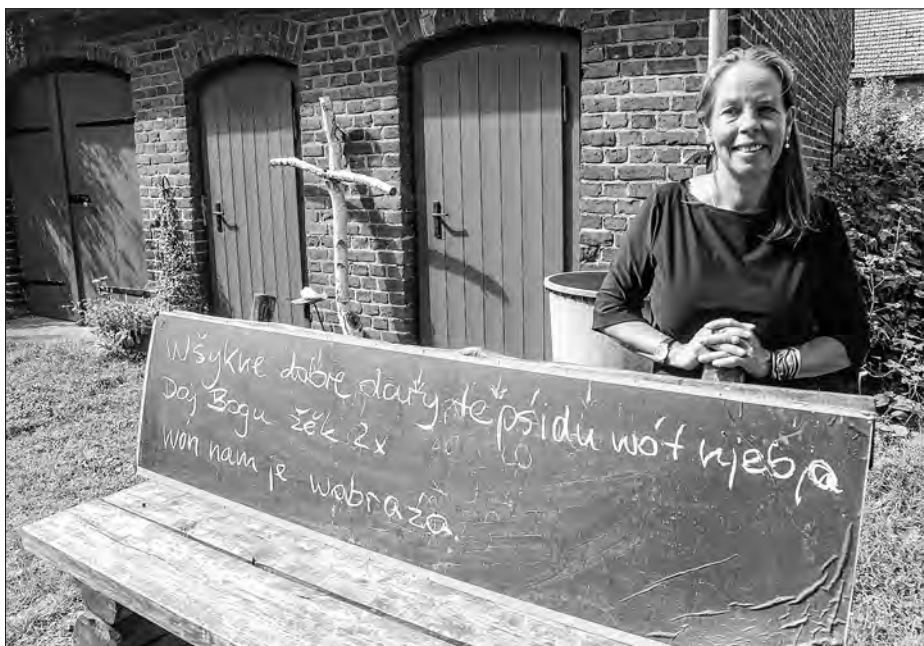 Wšykne dobre dary, te pśidu wót njebja
Daj Bogu źěk 2x
wón nam je wobraźa